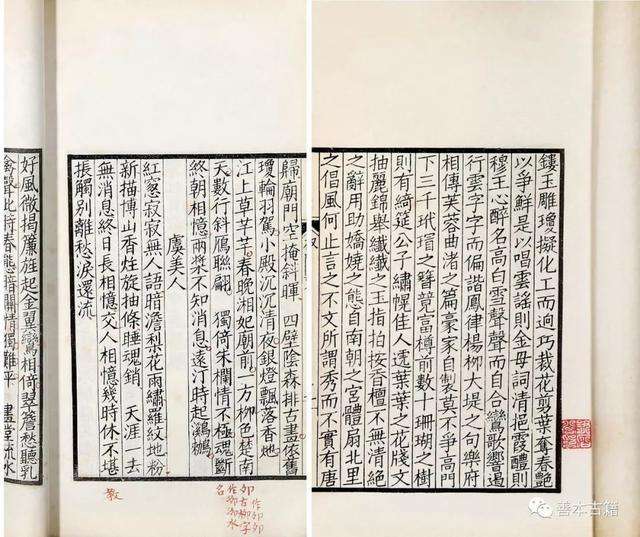 鏤玉雕瓊擬化工而迥巧裁花剪葉奪春艷
以爭鮮是以唱雲謠則金母詞清挹霞醴則
穆王心醉名高白雪聲聲而自合鸞歌響遏
行雲字字而偏諧鳳律楊柳大堤之句樂府
相傳芙蓉曲渚之篇豪家自製莫不爭高門
下三千玳瑁之簪競富樽前數十珊瑚之樹
則有綺筵公子繡幌佳人遞葉葉之花牋文
抽麗錦舉纖纖之玉指拍按香檀不無清絕
之辭用助嬌嬈之態自南朝之宮體扇北里
之倡風何止言之不文所謂秀而不實有唐
歸廟門空掩斜暉　四壁陰森排古畫依舊
瓊輪羽駕小殿沉沉清夜銀燈飄落香灺
江上草芊芊春晚湘妃廟前一方柳色楚南
天數行斜鴈聯翩　獨倚朱欄情不極魂斷
終朝相憶兩槳不知消息遠汀時起鸂鶒
虞美人
紅窓寂寂無人語暗澹梨花雨繡羅紋地粉
新描博山香炷旋抽條睡魂銷　天涯一去
無消息終日長相憶交人相憶幾時休不堪
悵觸別離愁淚還流
好風微揭簾旌起金翼鸞相倚翠簷愁聽乳
禽聲此時春態暗關情獨難平　畫堂流水
教
善本古籍